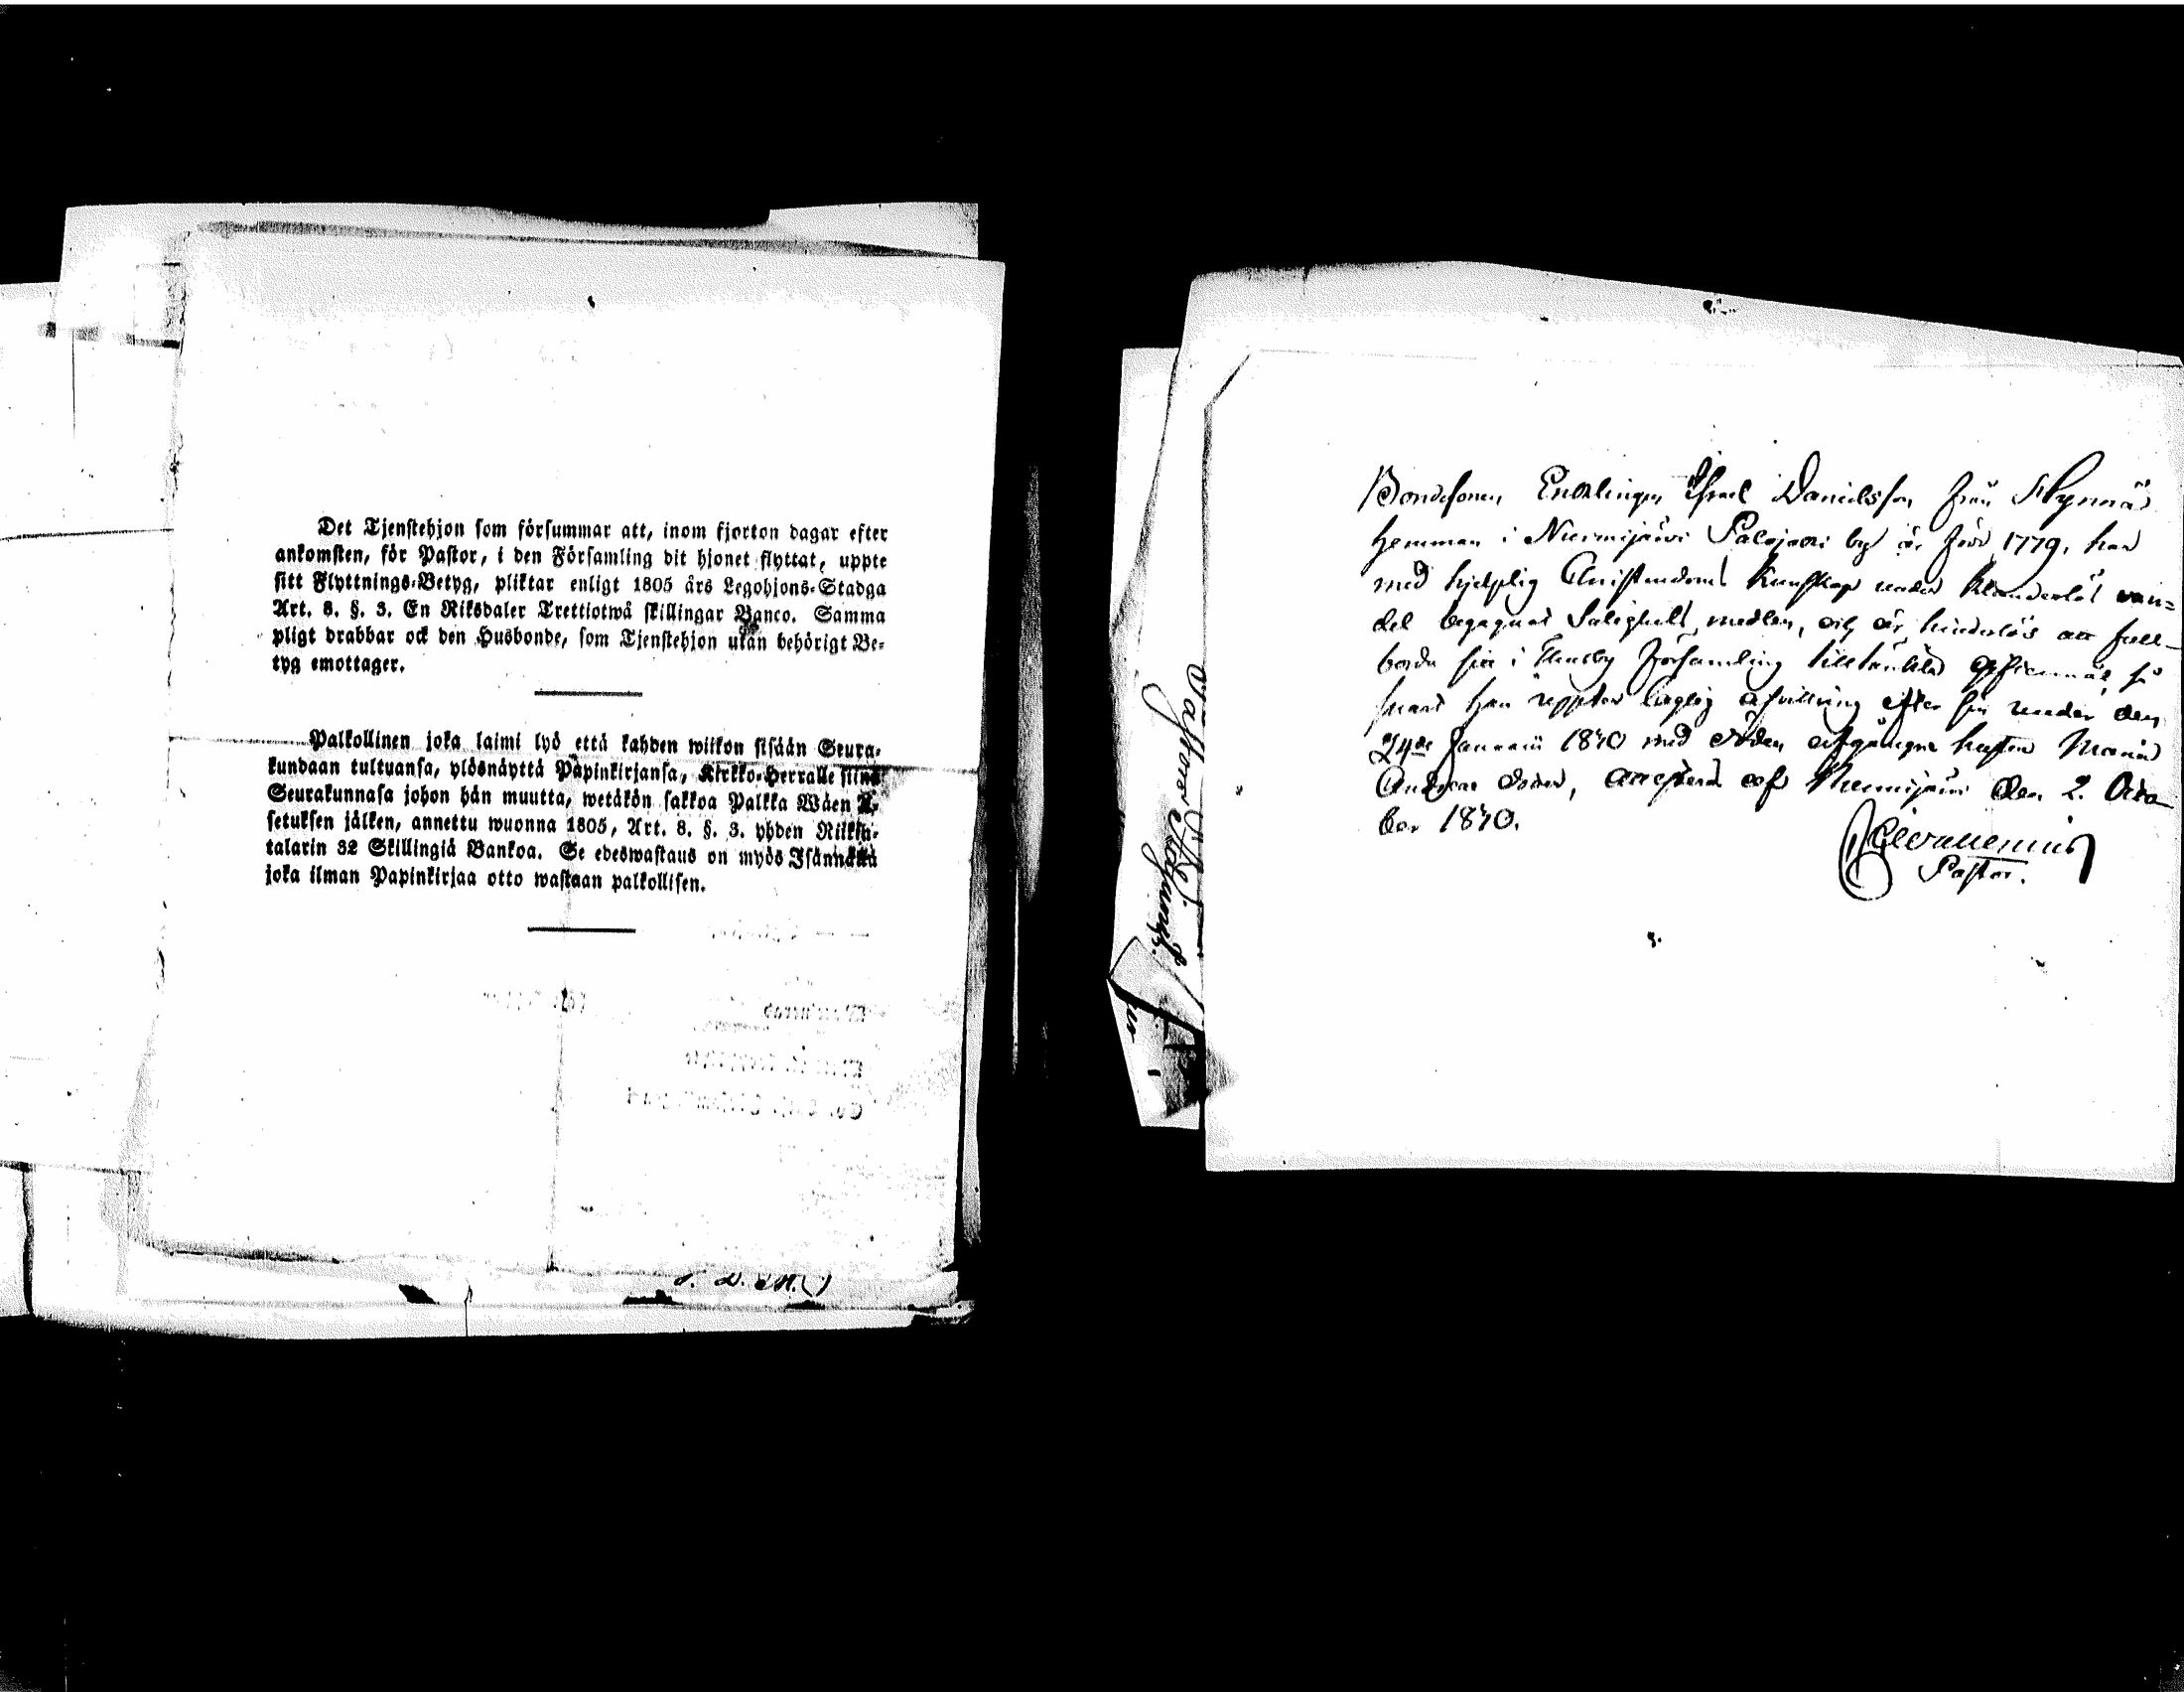 Det Tjenstehjon som försummar att, inom fjorton dagar efter
ankomsten, för Pastor, i den Församling dit hjonet flyttat, uppte
sitt Flyttnings-Betyg, pliktar enligt 1805 års Legohjons-Stadga
Art. 8. §. 3. En Riksdaler Trettiotwå skillingar Banco. Samma
pligt drabbar ock den Husbonde, som Tjenstehjon utan behörigt Be-
tyg emottager.
Palkollinen joka laimi lyö että kahden wiikon sisään Seura-
kundaan tultuansa, ylösnäyttä Papinkirjansa, Kirkko-Herralle siinä
Seurakunnasa johon hän muutta, wetäkön sakkoa Palkka Wäen A-
setuksen jälken, annettu wuonna 1805, Art. 8. §. 3. yhden Riikin-
talarin 32 Skillingiä Bankoa. Se edeswastaus on myös Isännällä
joka ilman Papinkirjaa otto wastaan palkollisen.
Bondesonen Enklingen Israel Danielsson från
hemman i Nurmijärvi Palojoki by är född 1779, har
med hjelplig Christendoms kunskap under klanderlöst van=
del begagnat Salighets medlen, och är hinderlös att full-
borda sin i Thusby församling tilltänkta så
snart han uppter laglig afvittring efter sin under den
24de Januarii 1840 med döden afgångne hustru Maria
Anders dotter, af Nurmijärvi den 2. Octo-
ber 1840.
Pastor.